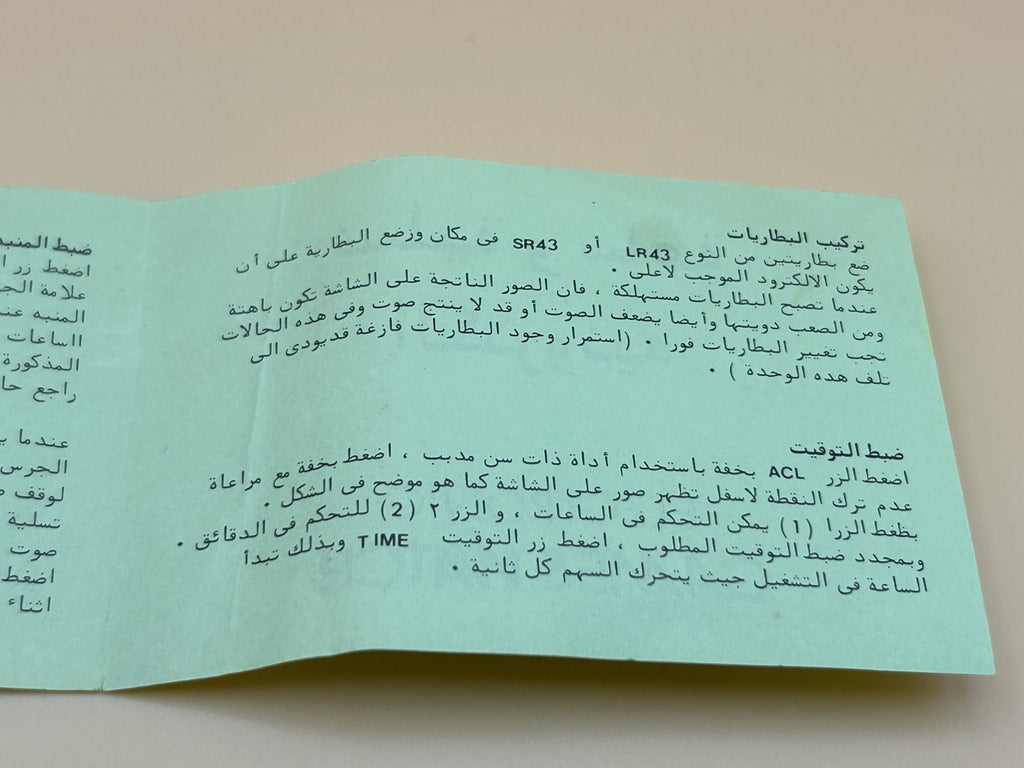 تركيب البطاريات
ضع بطاريتين من النوع LR43 أو SR43 فى مكان وزضع البطارية على أن
يكون الالكترود الموجب لاعلى .
عندما تصبح البطاريات مستهلكة ، فان الصور الناتجة على الشاشة تكون باهتة
ومن الصعب دويتها وأيضا يضعف الصوت أو قد لا ينتج صوت وفى هذه الحالات
تجب تغيير البطاريات فورا . (استمرار وجود البطاريات فازغة قديودى الى
تلف هده الوحدة ) .
ضبط التوقيت
اضغط الزر ACL بخفة باستخدام أداة ذات سن مدبب ، اضغط بخفة مع مراعاة
عدم ترك النقطة لاسفل تظهر صور على الشاشة كما هو موضح فى الشكل .
بظغط الزرا (1) يمكن التحكم فى الساعات ، و الزر ٢ (2) للتحكم فى الدقائق .
وبمجدد ضبط التوقيت المطلوب ، اضغط زر التوقيت TIME وبذلك تبدأ
الساعة فى التشغيل جيث يتحرك السهم كل ثانية .
ضبط المنبه
اضغط زر ا
علامة الجر
المنبه عند
الساعات
المذكورة
راجع حا
عندما ي
الجرس
لوقف
تسلية
صوت
اضغط
اثناء